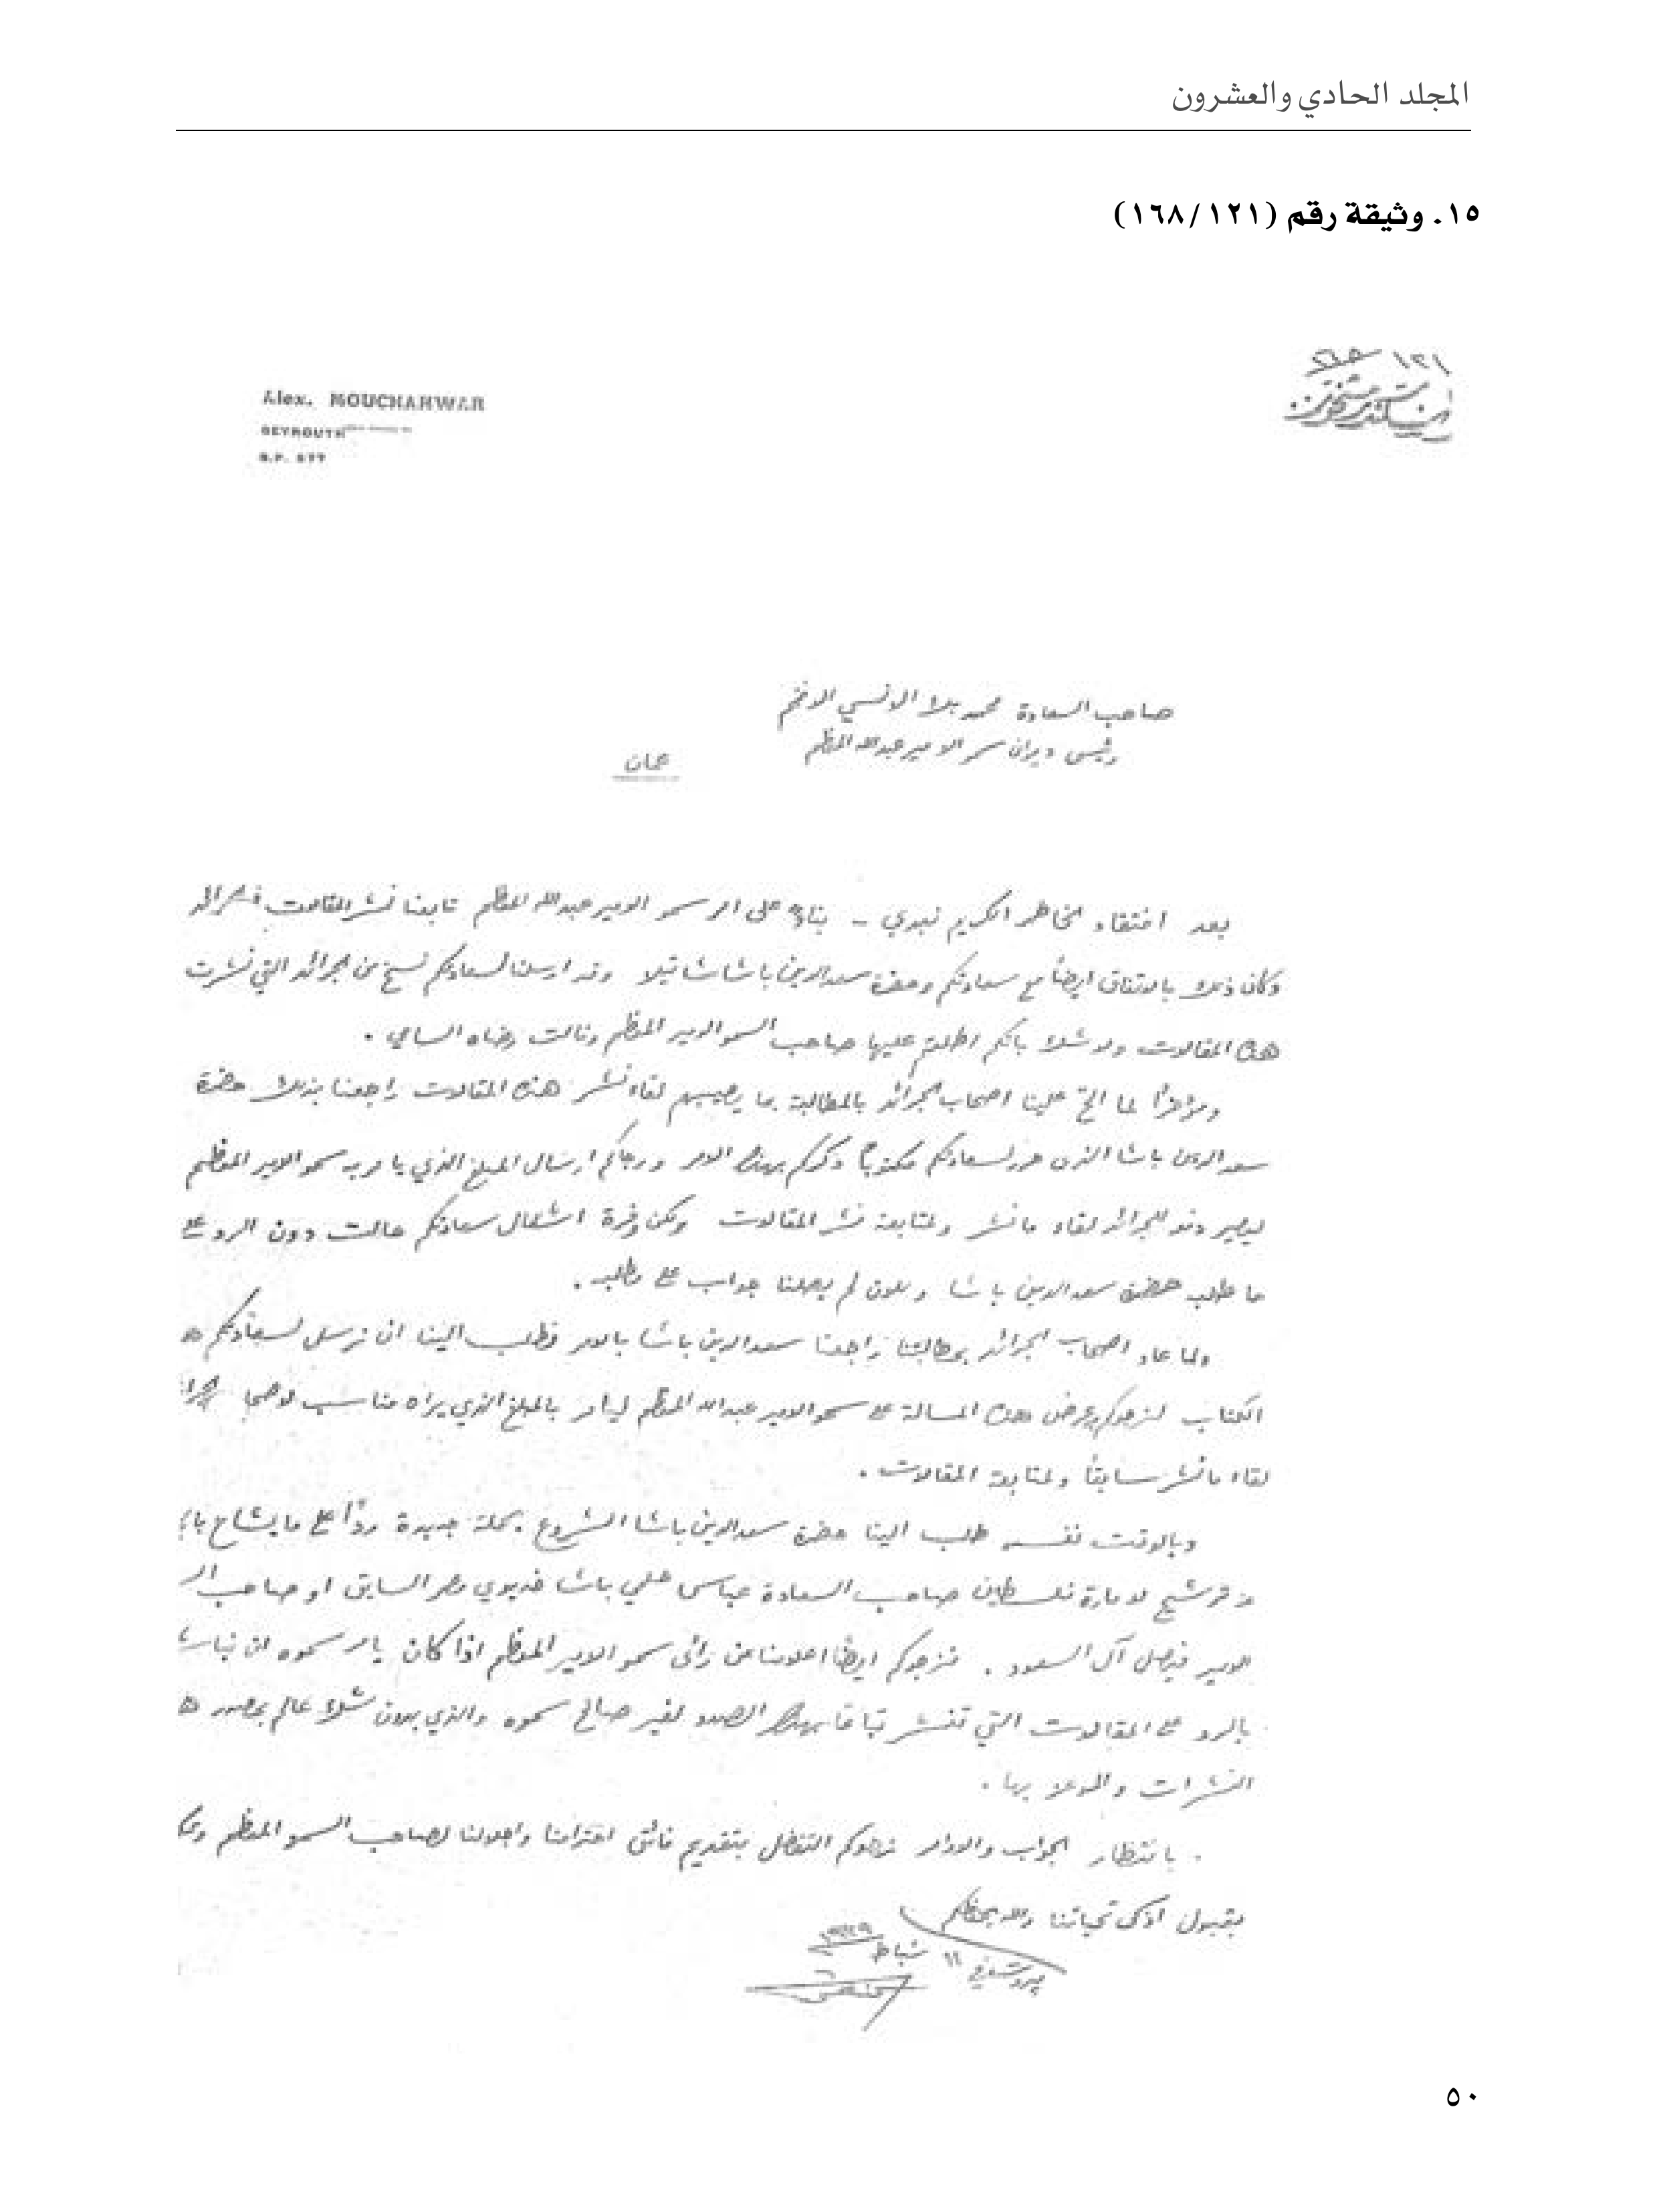 المجلد الحادي والعشرون
١٥. وثيقة رقم (١٦٨/١٢١)
١٢١
Alex. MOUCHAHWAR
BEYROUTH
B.P. 577
صاحب السعادة محمد بك الانسي الافخم
رئيس ديوان سمو الامير عبدالله المعظم
عمان
بعد افتقاد الخاطر الكريم نبدي - بناءً على امر سمو الامير عبدالله المعظم تابعنا نشر المقالات في الجرائد
وكان ذلك بالاتفاق ايضاً مع سعادتكم وحضرة سعدالدين باشا شاتيلا وقد ارسلنا لسعادتكم نسخ من الجرائد التي نشرت
هذه المقالات ولا شك بانكم اطلعتم عليها صاحب السمو الامير المعظم ونالت رضاه السامي .
ومؤخراً لما الح علينا اصحاب الجرائد بالمطالبة بما يصيبهم لقاء نشر هذه المقالات راجعنا بذلك حضرة
سعدالدين باشا الذي حرر لسعادتكم مكتوباً ذكركم بهذا الامر ورجاكم ارسال المبلغ الذي يامر به سمو الامير المعظم
ليصير دفعه للجرائد لقاء ما نشر ولمتابعة نشر المقالات ولكن وفرة اشغال سعادتكم حالت دون الرد على
ما طلب حضرة سعدالدين باشا وللان لم يصلنا جواب على مطلبه .
ولما عاد اصحاب الجرائد بمطالبتنا راجعنا سعدالدين باشا بالامر فطلب الينا ان نرسل لسعادتكم
الكتاب لنرجوكم بعرض هذه المسالة على سمو الامير عبدالله المعظم ليامر بالمبلغ الذي يراه مناسب لاصحاب
لقاء ما نشر سابقاً ولمتابعة المقالات .
وبالوقت نفسه طلب الينا حضرة سعدالدين باشا الشروع بحملة جديدة رداً على ما يشاع
من ترشيح لامارة فلسطين صاحب السعادة عباس حلمي باشا خديوي مصر السابق او صاحب
الامير فيصل آل السعود . فنرجوكم ايضاً اعلامنا عن رأي سمو الامير المعظم اذا كان يامر سموه ان
بالرد على المقالات التي تنشر تباعاً بهذا الصدد لغير صالح سموه والذي بدون شك عالم بمصدر
النشرات
بانتظار الجواب والاوامر نرجوكم التفضل بتقديم فائق احترامنا واجلالنا لصاحب السمو المعظم
بقبول ازكى تحياتنا والله يحفظكم
بيروت في ١١ شباط ١٩٣٩
٥٠